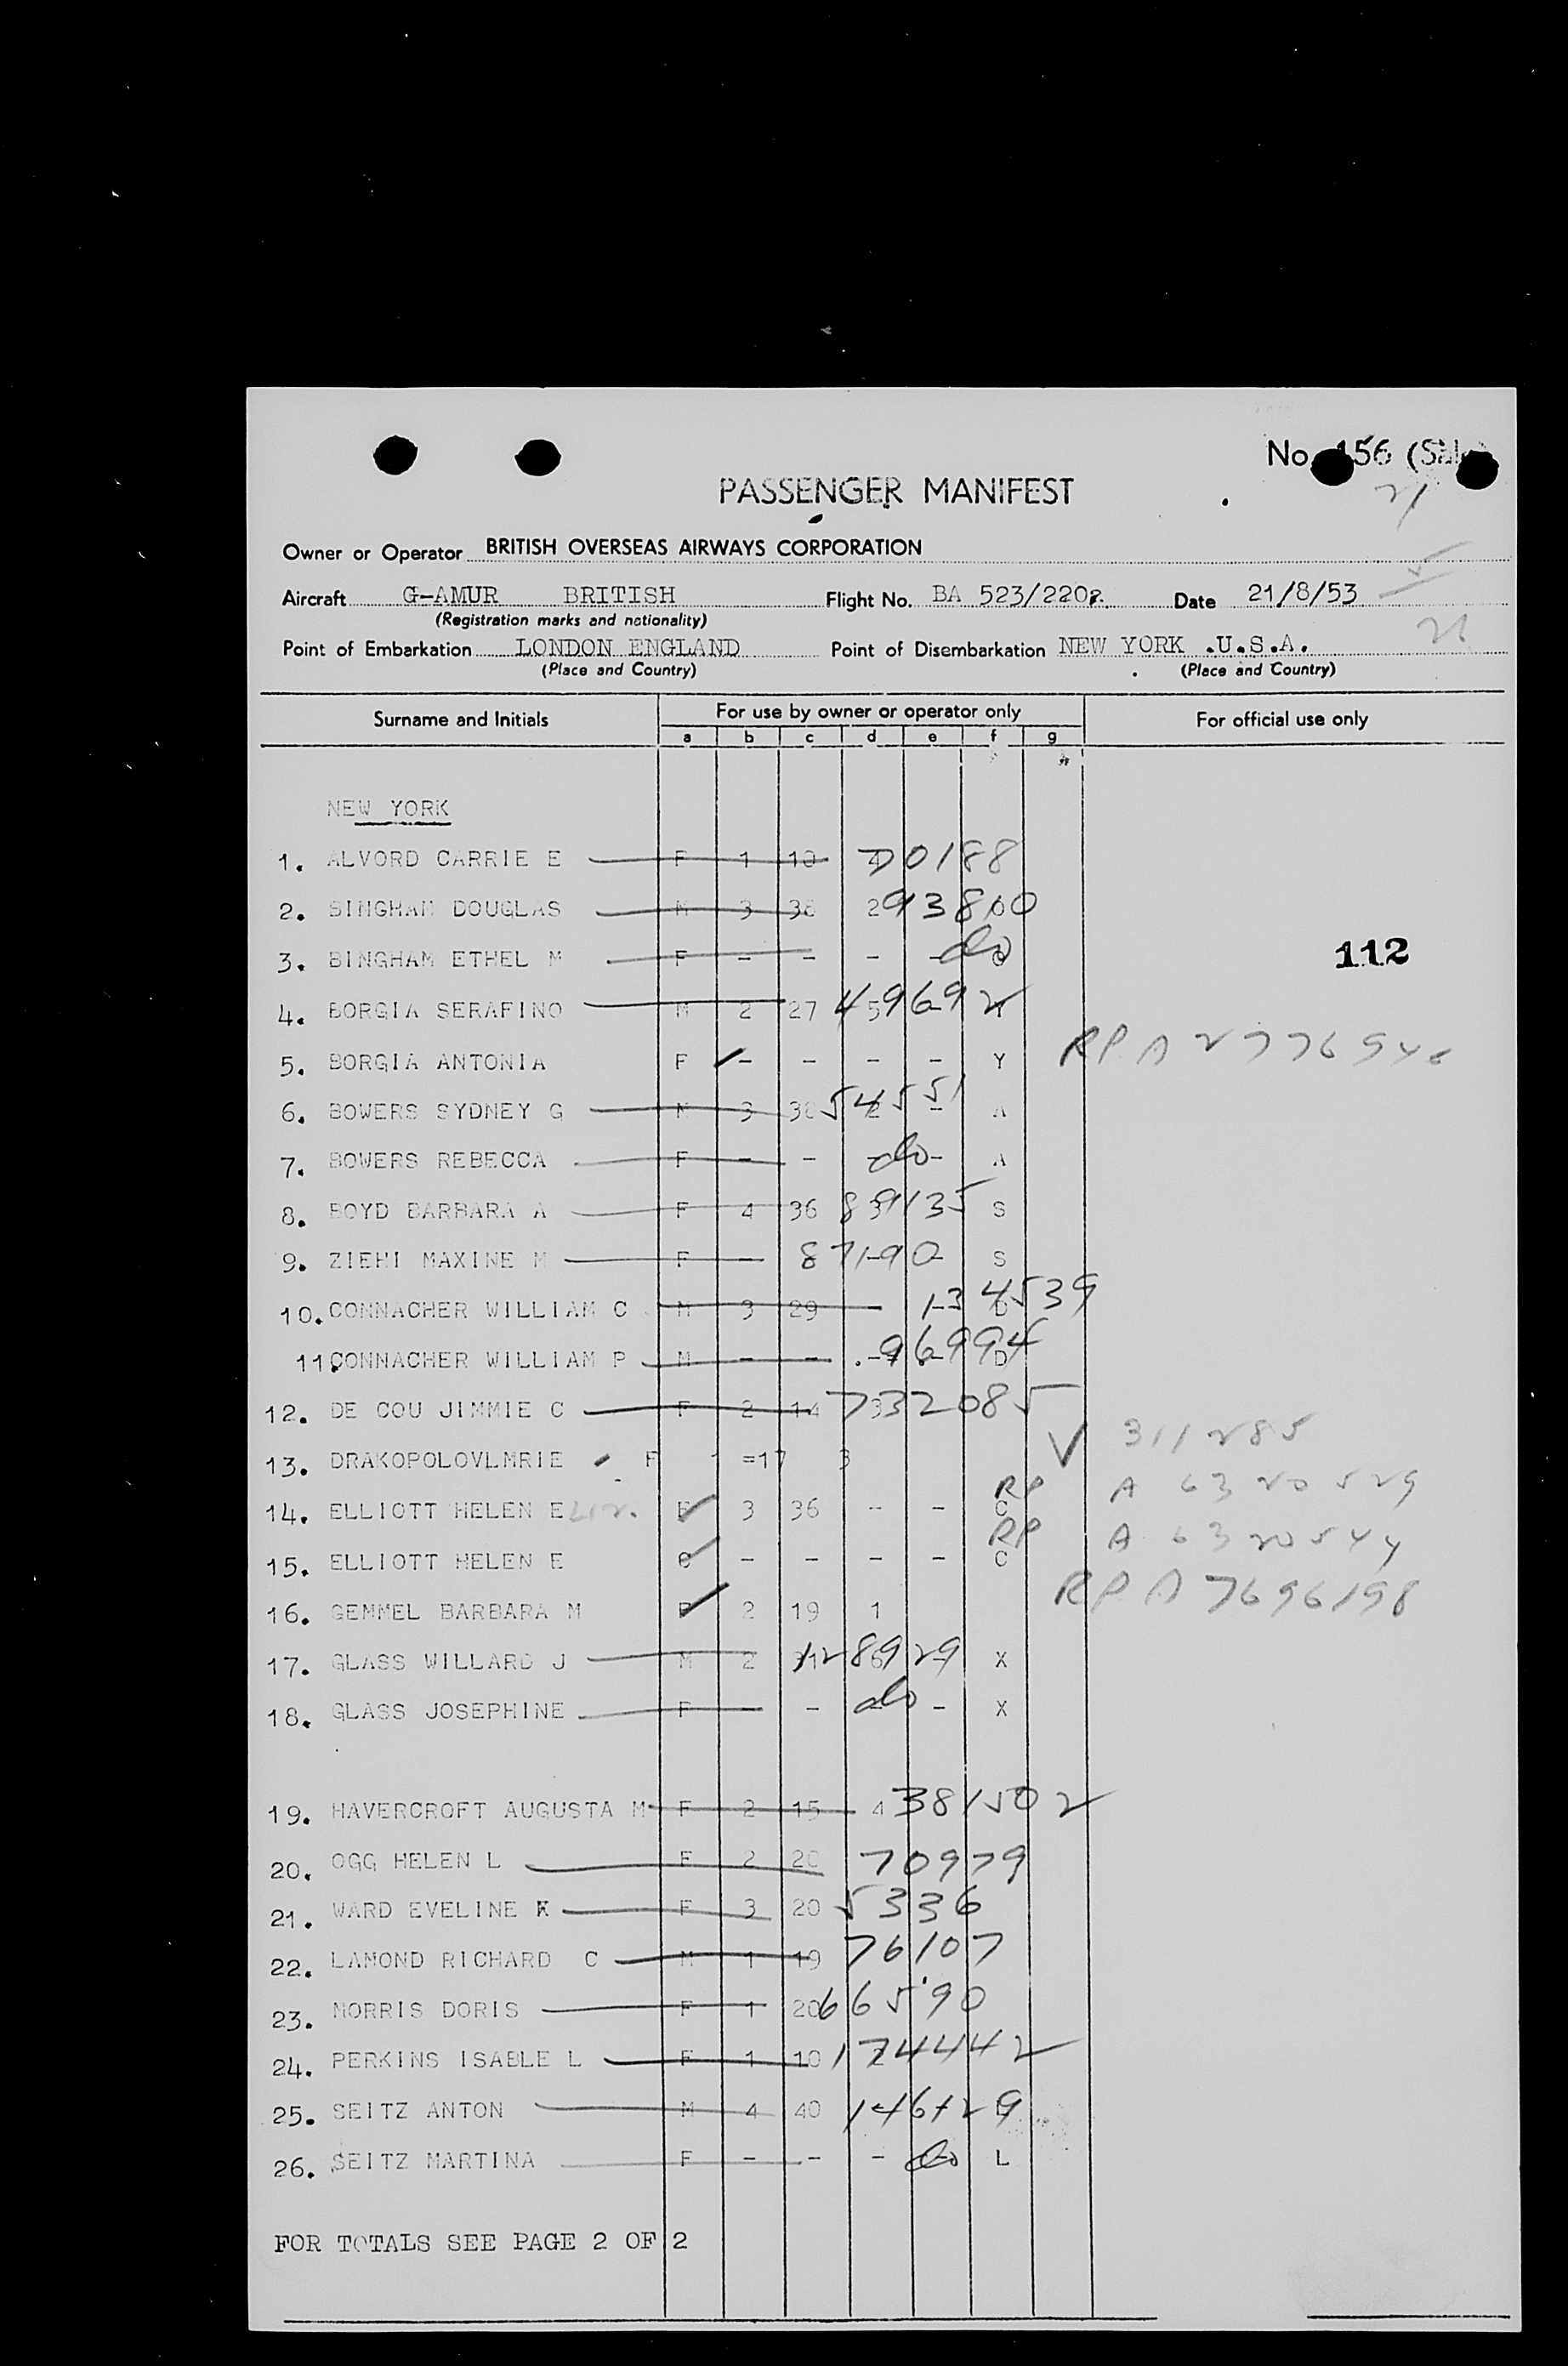 No 156 (Sal
21
PASSENGER MANIFEST
Owner or Operator BRITISH OVERSEAS AIRWAYS CORPORATION
Aircraft G-AMUR BRITISH Flight No. BA 523/2202 Date 21/8/53
(Registration marks and nationality)
Point of Embarkation LONDON ENGLAND Point of Disembarkation NEW YORK .U.S.A.
(Place and Country) (Place and Country)
Surname and Initials For use by owner or operator only For official use only
a b c d e f g
NEW YORK
1. ALVORD CARRIE E F 1 10 4 70188
2. BINGHAM DOUGLAS M 3 36 2 93800
3. BINGHAM ETHEL M F - - - - do
112
4. BORGIA SERAFINO M 2 27 5 49692 Y
5. BORGIA ANTONIA F - - - - Y RP A
6. BOWERS SYDNEY G M 3 38 2 54551 - A
7. BOWERS REBECCA F - - - do - A
8. BOYD BARBARA A F 4 36 3 89135 S
9. ZIEHI MAXINE M F - 87190 - S
10. CONNACHER WILLIAM C M 3 29 - 134539 D
11. CONNACHER WILLIAM P M - - - 96994 D
12. DE COU JIMMIE C F 2 14 3 732085
13. DRAKOPOLOVLMRIE F 1 =17 3 V 311285
14. ELLIOTT HELEN E F 3 36 - - C RP A 6320529
15. ELLIOTT HELEN E C - - - - C RP A 6320544
16. GEMMEL BARBARA M F 2 19 1 RP A 7696198
17. GLASS WILLARD J M 2 31 6 128929 X
18. GLASS JOSEPHINE F - - do - X
19. HAVERCROFT AUGUSTA M F 2 15 4 381502
20. OGG HELEN L F 2 20 70979
21. WARD EVELINE K F 3 20 5336
22. LAMOND RICHARD C M 1 19 76107
23. MORRIS DORIS F 1 20 66590
24. PERKINS ISABLE L F 1 10 174442
25. SEITZ ANTON M 4 40 146129
26. SEITZ MARTINA F - - - do L
FOR TOTALS SEE PAGE 2 OF 2